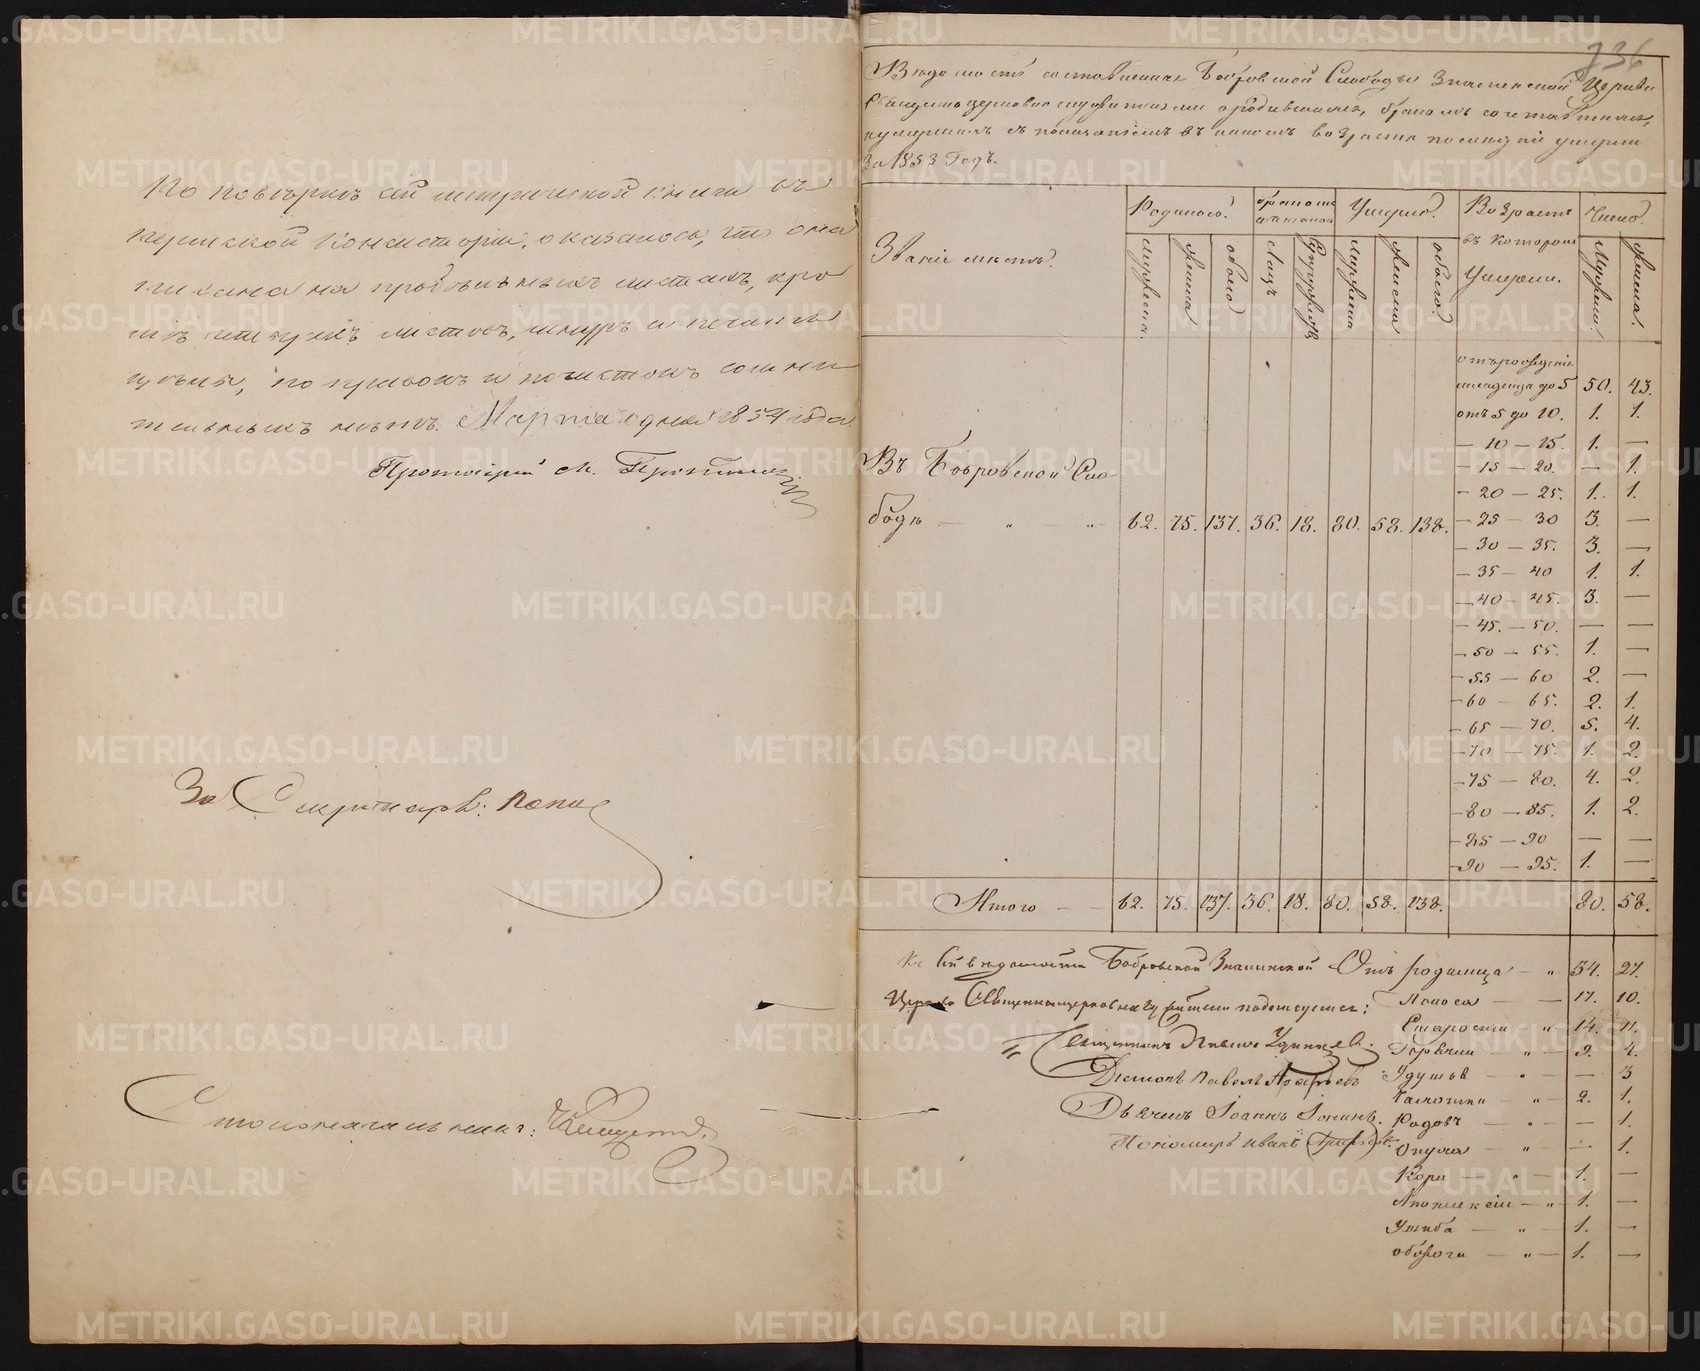 По повѣркѣ сей метрической книги въ
Пермской Консисторіи, оказалось, что она
писана на пробѣльныхъ листахъ, кро
мѣ листовъ, шнуръ и печать
цѣлы, по и сомни
тельныхъ нѣтъ. Марта дня 1854 года.
Протоіерей М.
За Секретаря:
Столоначальникъ:
236
Вѣдомость составленная Бобровской Слободы Знаменской Церкви
Священноцерковнослужителями о родившихся, бракомъ сочетавшихся,
и умершихъ съ показаніемъ въ какомъ возрастѣ послѣдніе умерли
За 1853 Годъ.
Званіе мѣстъ.
Родилось.
бракомъ сочеталось
Умерло.
Возрастъ въ которомъ Умерли.
Число.
Мужеска.
Женска
обоего
Лицъ
Супружествъ
Мужеска
Женска
обоего.
Мужеска.
Женска.
отъ рожденія
младенца до 5 50. 43.
отъ 5 до 10. 1. 1.
— 10 — 15. 1. —
— 15 — 20. — 1.
— 20 — 25. 1. 1.
— 25 — 30 3. —
— 30 — 35. 3. —
— 35 — 40 1. 1.
— 40 — 45. 3. —
— 45. — 50. — —
— 50 — 55. 1. —
— 55 — 60 2. —
— 60 — 65. 2. 1.
— 65 — 70. 5. 4.
— 70 — 75. 1. 2.
— 75 — 80. 4. 2.
— 80 — 85. 1. 2.
— 85 — 90 — —
— 90 — 95. 1. —
Въ Бобровской Сло-
бодѣ — „ — „ 62. 75. 137. 36. 18. 80. 58. 138.
Итого — — 62. 75. 137. 36. 18. 80. 58. 138. 80. 58.
Къ сей вѣдомости Бобровской Знаменской
Церкви Священноцерковнослужители подписуемся:
Священникъ
Діаконъ Павелъ
Дьячекъ Іоаннъ
Пономарь Иванъ
Отъ родимца — „ 34. 27.
Поноса — — 17. 10.
Старости „ 14. 11.
Горячки — „ — 9. 4.
Удушья — „ — — 3
Чахотки — „ — 2. 1.
Родовъ — „ — — 1.
Опухоли — „ — — 1.
Кори — „ — 1. —
Апоплексіи — „ — 1. —
Ушиба — „ — 1. —
обжоги — „ — 1. —
METRIKI.GASO-URAL.RU